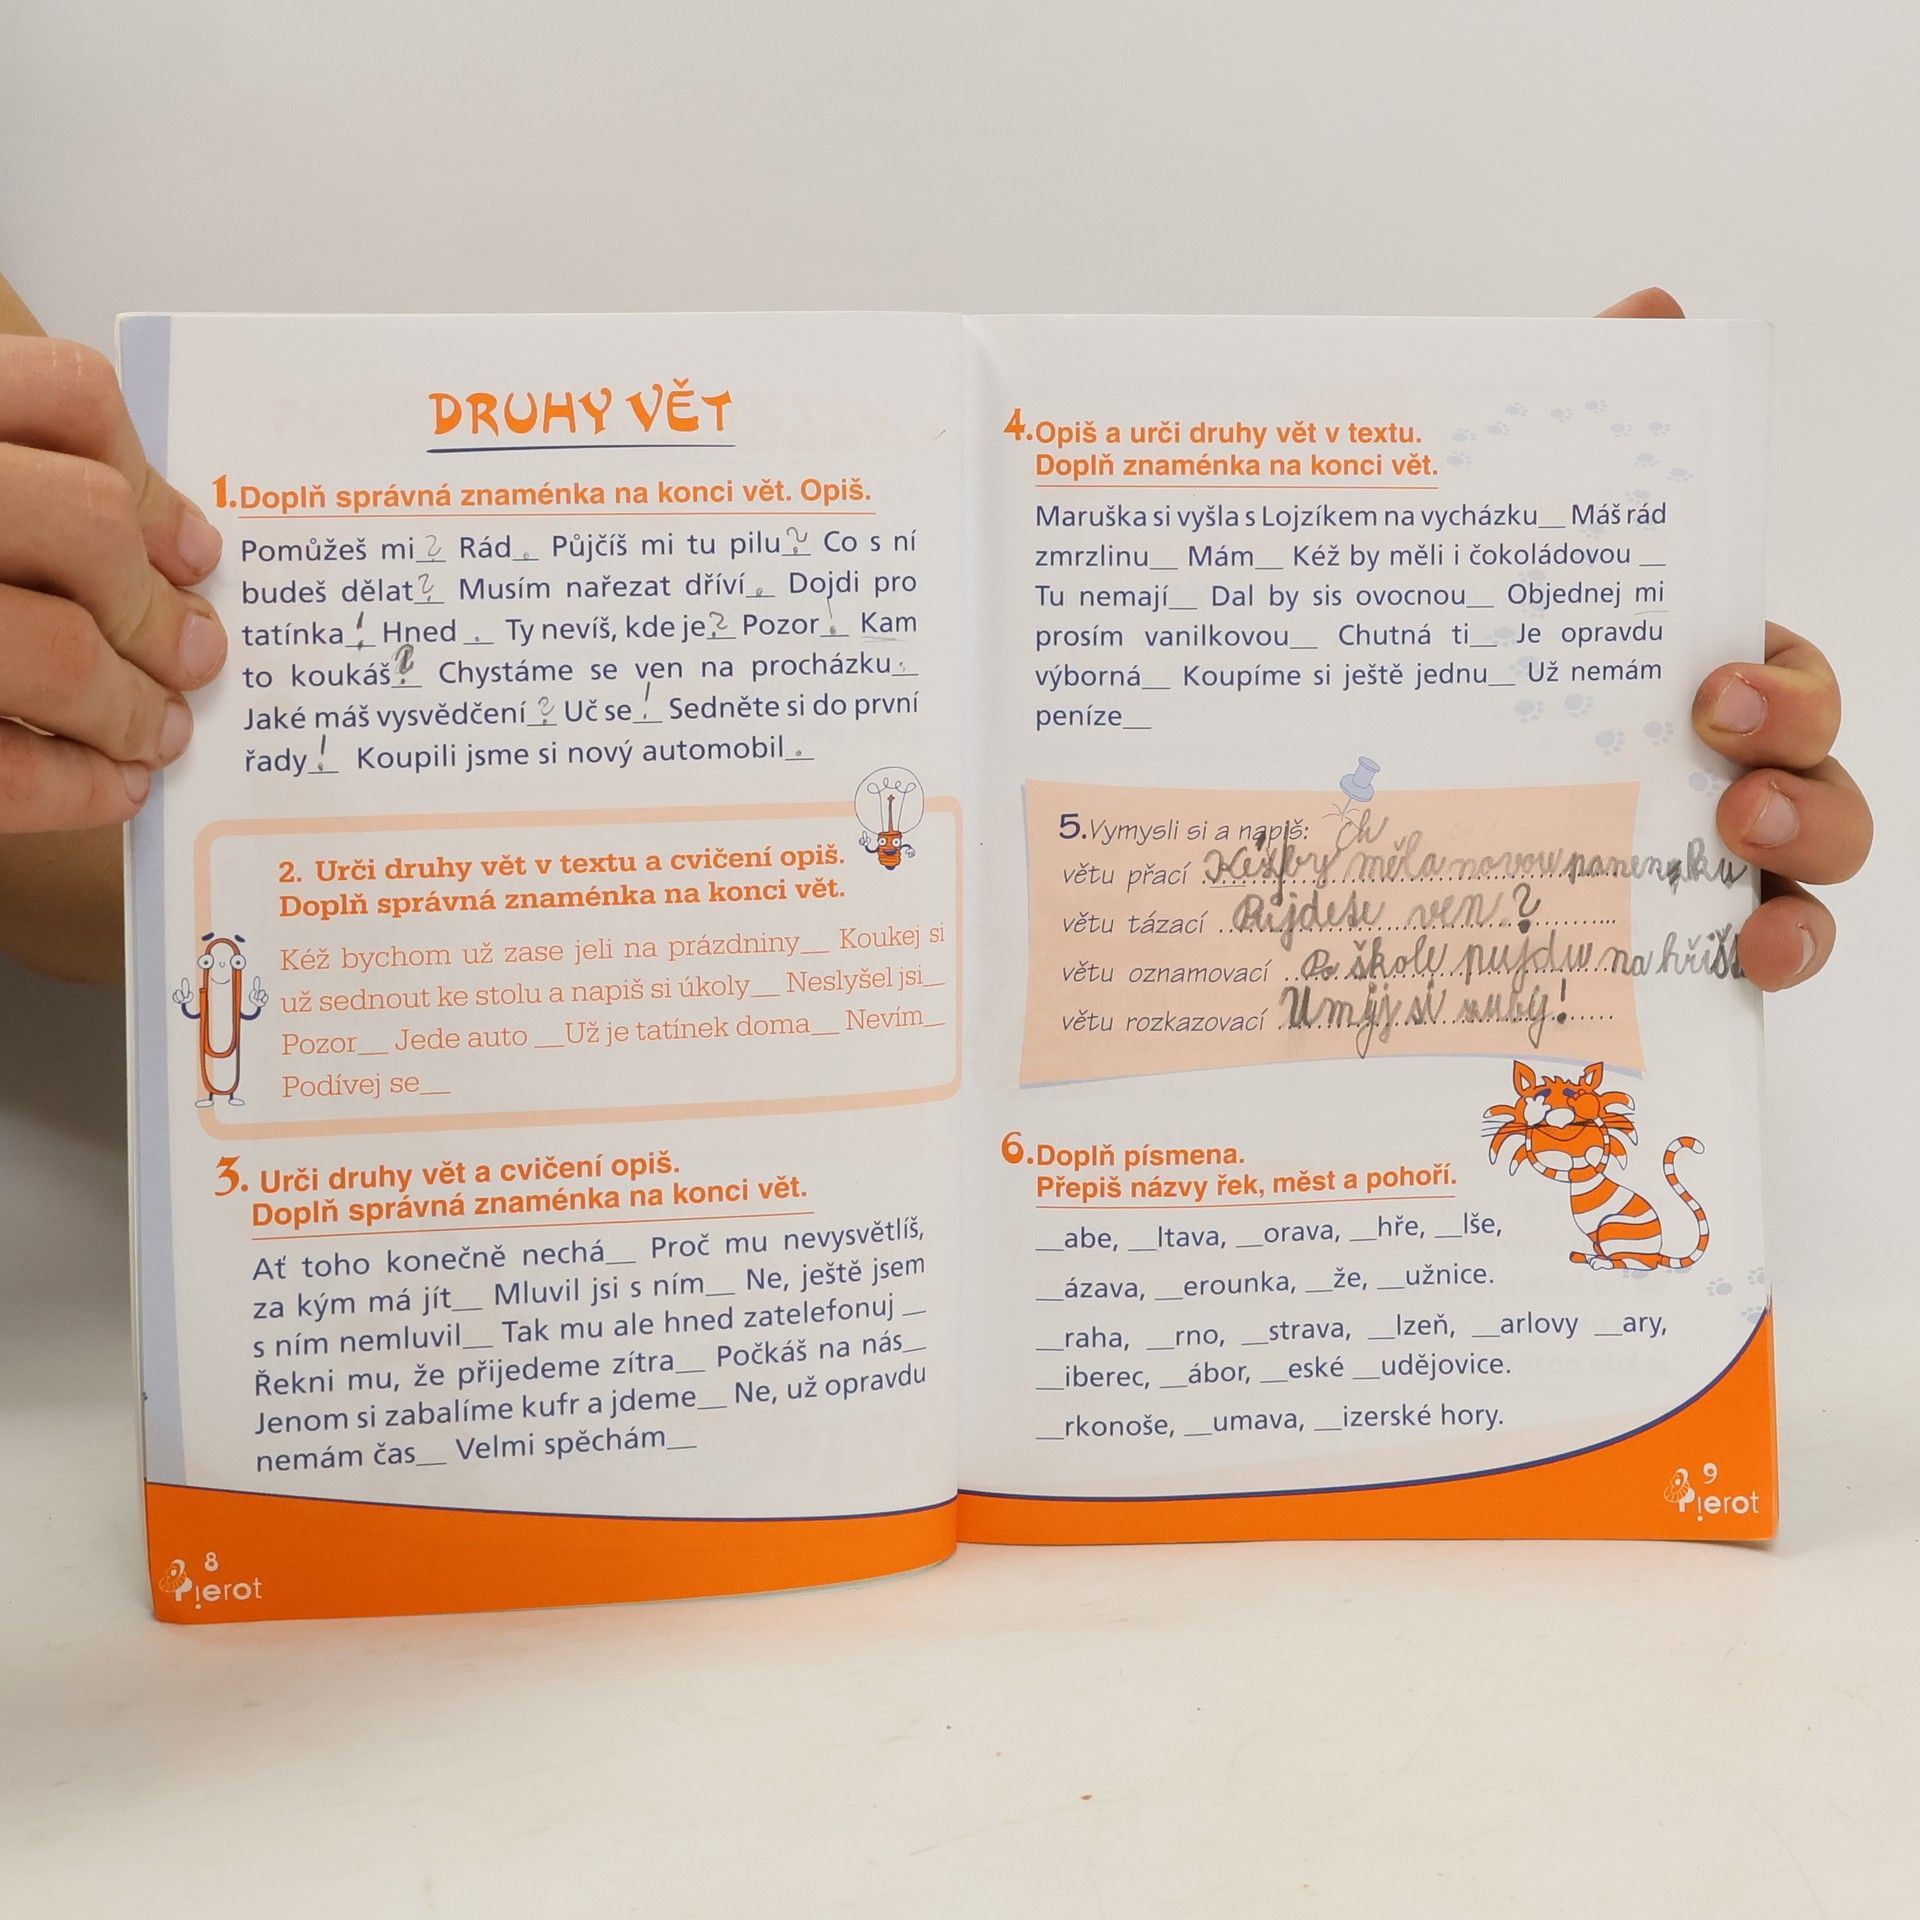 DRUHY VĚT
1. Doplň správná znaménka na konci vět. Opiš.
Pomůžeš mi ? Rád . Půjčíš mi tu pilu ? Co s ní
budeš dělat ? Musím nařezat dříví . Dojdi pro
tatínka ! Hned . Ty nevíš, kde je ? Pozor ! Kam
to koukáš ? Chystáme se ven na procházku .
Jaké máš vysvědčení ? Uč se ! Sedněte si do první
řady ! Koupili jsme si nový automobil .
2. Urči druhy vět v textu a cvičení opiš.
Doplň správná znaménka na konci vět.
Kéž bychom už zase jeli na prázdniny__ Koukej si
už sednout ke stolu a napiš si úkoly__ Neslyšel jsi__
Pozor__ Jede auto __Už je tatínek doma__ Nevím__
Podívej se__
3. Urči druhy vět a cvičení opiš.
Doplň správná znaménka na konci vět.
Ať toho konečně nechá__ Proč mu nevysvětlíš,
za kým má jít__ Mluvil jsi s ním__ Ne, ještě jsem
s ním nemluvil__ Tak mu ale hned zatelefonuj __
Řekni mu, že přijedeme zítra__ Počkáš na nás__
Jenom si zabalíme kufr a jdeme__ Ne, už opravdu
nemám čas__ Velmi spěchám__
8
Pierot
4. Opiš a urči druhy vět v textu.
Doplň znaménka na konci vět.
Maruška si vyšla s Lojzíkem na vycházku__ Máš rád
zmrzlinu__ Mám__ Kéž by měli i čokoládovou __
Tu nemají__ Dal by sis ovocnou__ Objednej mi
prosím vanilkovou__ Chutná ti__ Je opravdu
výborná__ Koupíme si ještě jednu__ Už nemám
peníze__
5. Vymysli si a napiš: ch
větu přací Kéžby měla novou panenku
větu tázací Půjdete ven?
větu oznamovací Po škole pujdu na hřišt
větu rozkazovací Umyj si ruby!
6. Doplň písmena.
Přepiš názvy řek, měst a pohoří.
__abe, __ltava, __orava, __hře, __lše,
__ázava, __erounka, __že, __užnice.
__raha, __rno, __strava, __lzeň, __arlovy __ary,
__iberec, __ábor, __eské __udějovice.
__rkonoše, __umava, __izerské hory.
9
Pierot